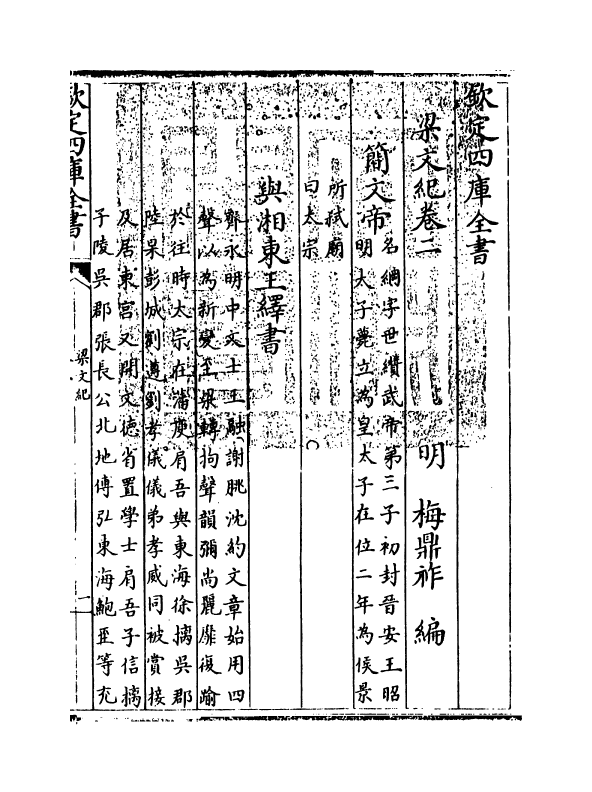 欽定四庫全書
梁文紀卷二
明　梅鼎祚　編
簡文帝
名綱字世纉武帝第三子初封晉安王昭
明太子薨立為皇太子在位二年為侯景
所弑廟
曰太宗
與湘東王繹書
齊永明中文士王融謝朓沈約文章始用四
聲以為新變至梁轉拘聲韻彌尚麗靡復踰
於往時太宗在藩庾肩吾與東海徐摛吳郡
陸杲彭城劉遵劉孝儀儀弟孝威同被賞接
及居東宮又開文德省置學士肩吾子信摛
子陵吳郡張長公北地傅弘東海鮑至等充
欽定四庫全書
梁文紀
一